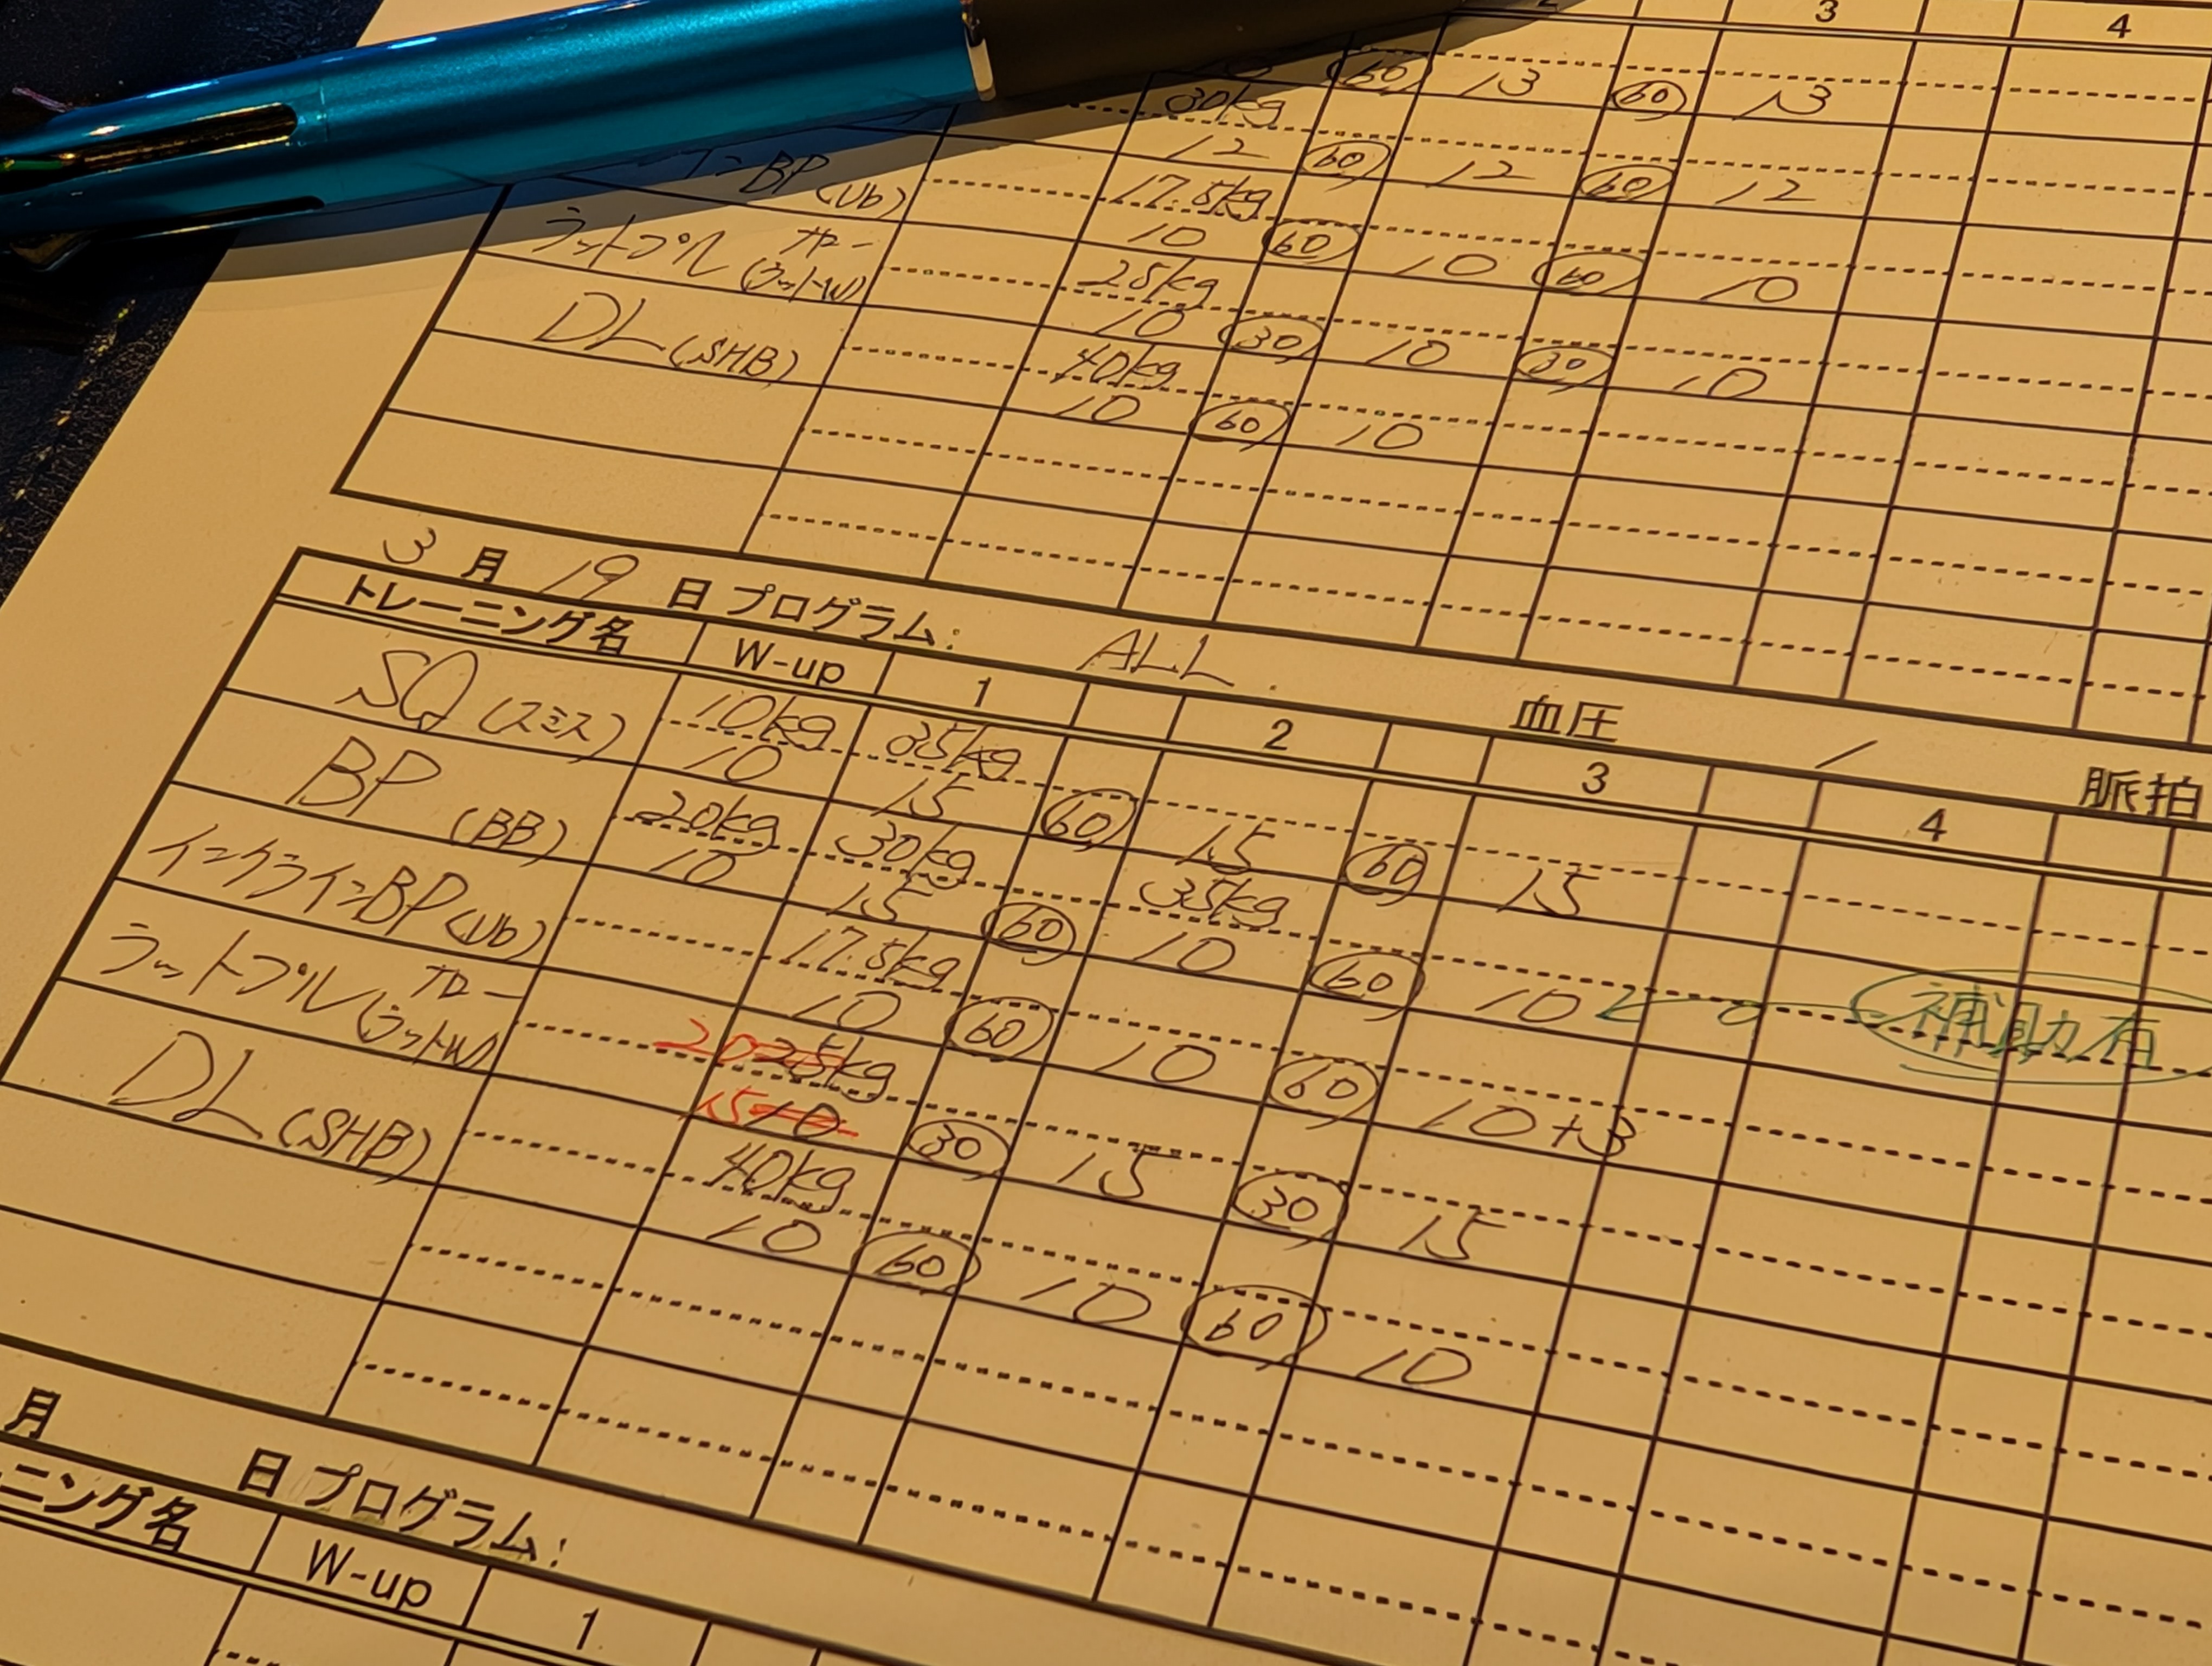 2 3 4
60 13 60 13
30kg
12 60 12 60 12
BP (Ub) 17.5kg
10 60 10 60 10
ラットプル ナロー (ラットM) 25kg
10 30 10 30 10
DL (SHB) 40kg
10 60 10
3月19日 プログラム: ALL. 血圧 / 脈拍
トレーニング名 W-up 1 2 3 4
SQ (スミス) 10kg 35kg
10 15 60 15 60 15
BP (BB) 20kg 30kg 35kg
10 15 60 10 60 10 ← 補助有
インクラインBP (Ub) 17.5kg
10 60 10 60 10+3
ラットプル ナロー (ラットM) 20 25kg
15 10 30 15 30 15
DL (SHB) 40kg
10 60 10 60 10
月 日 プログラム:
ーニング名 W-up 1